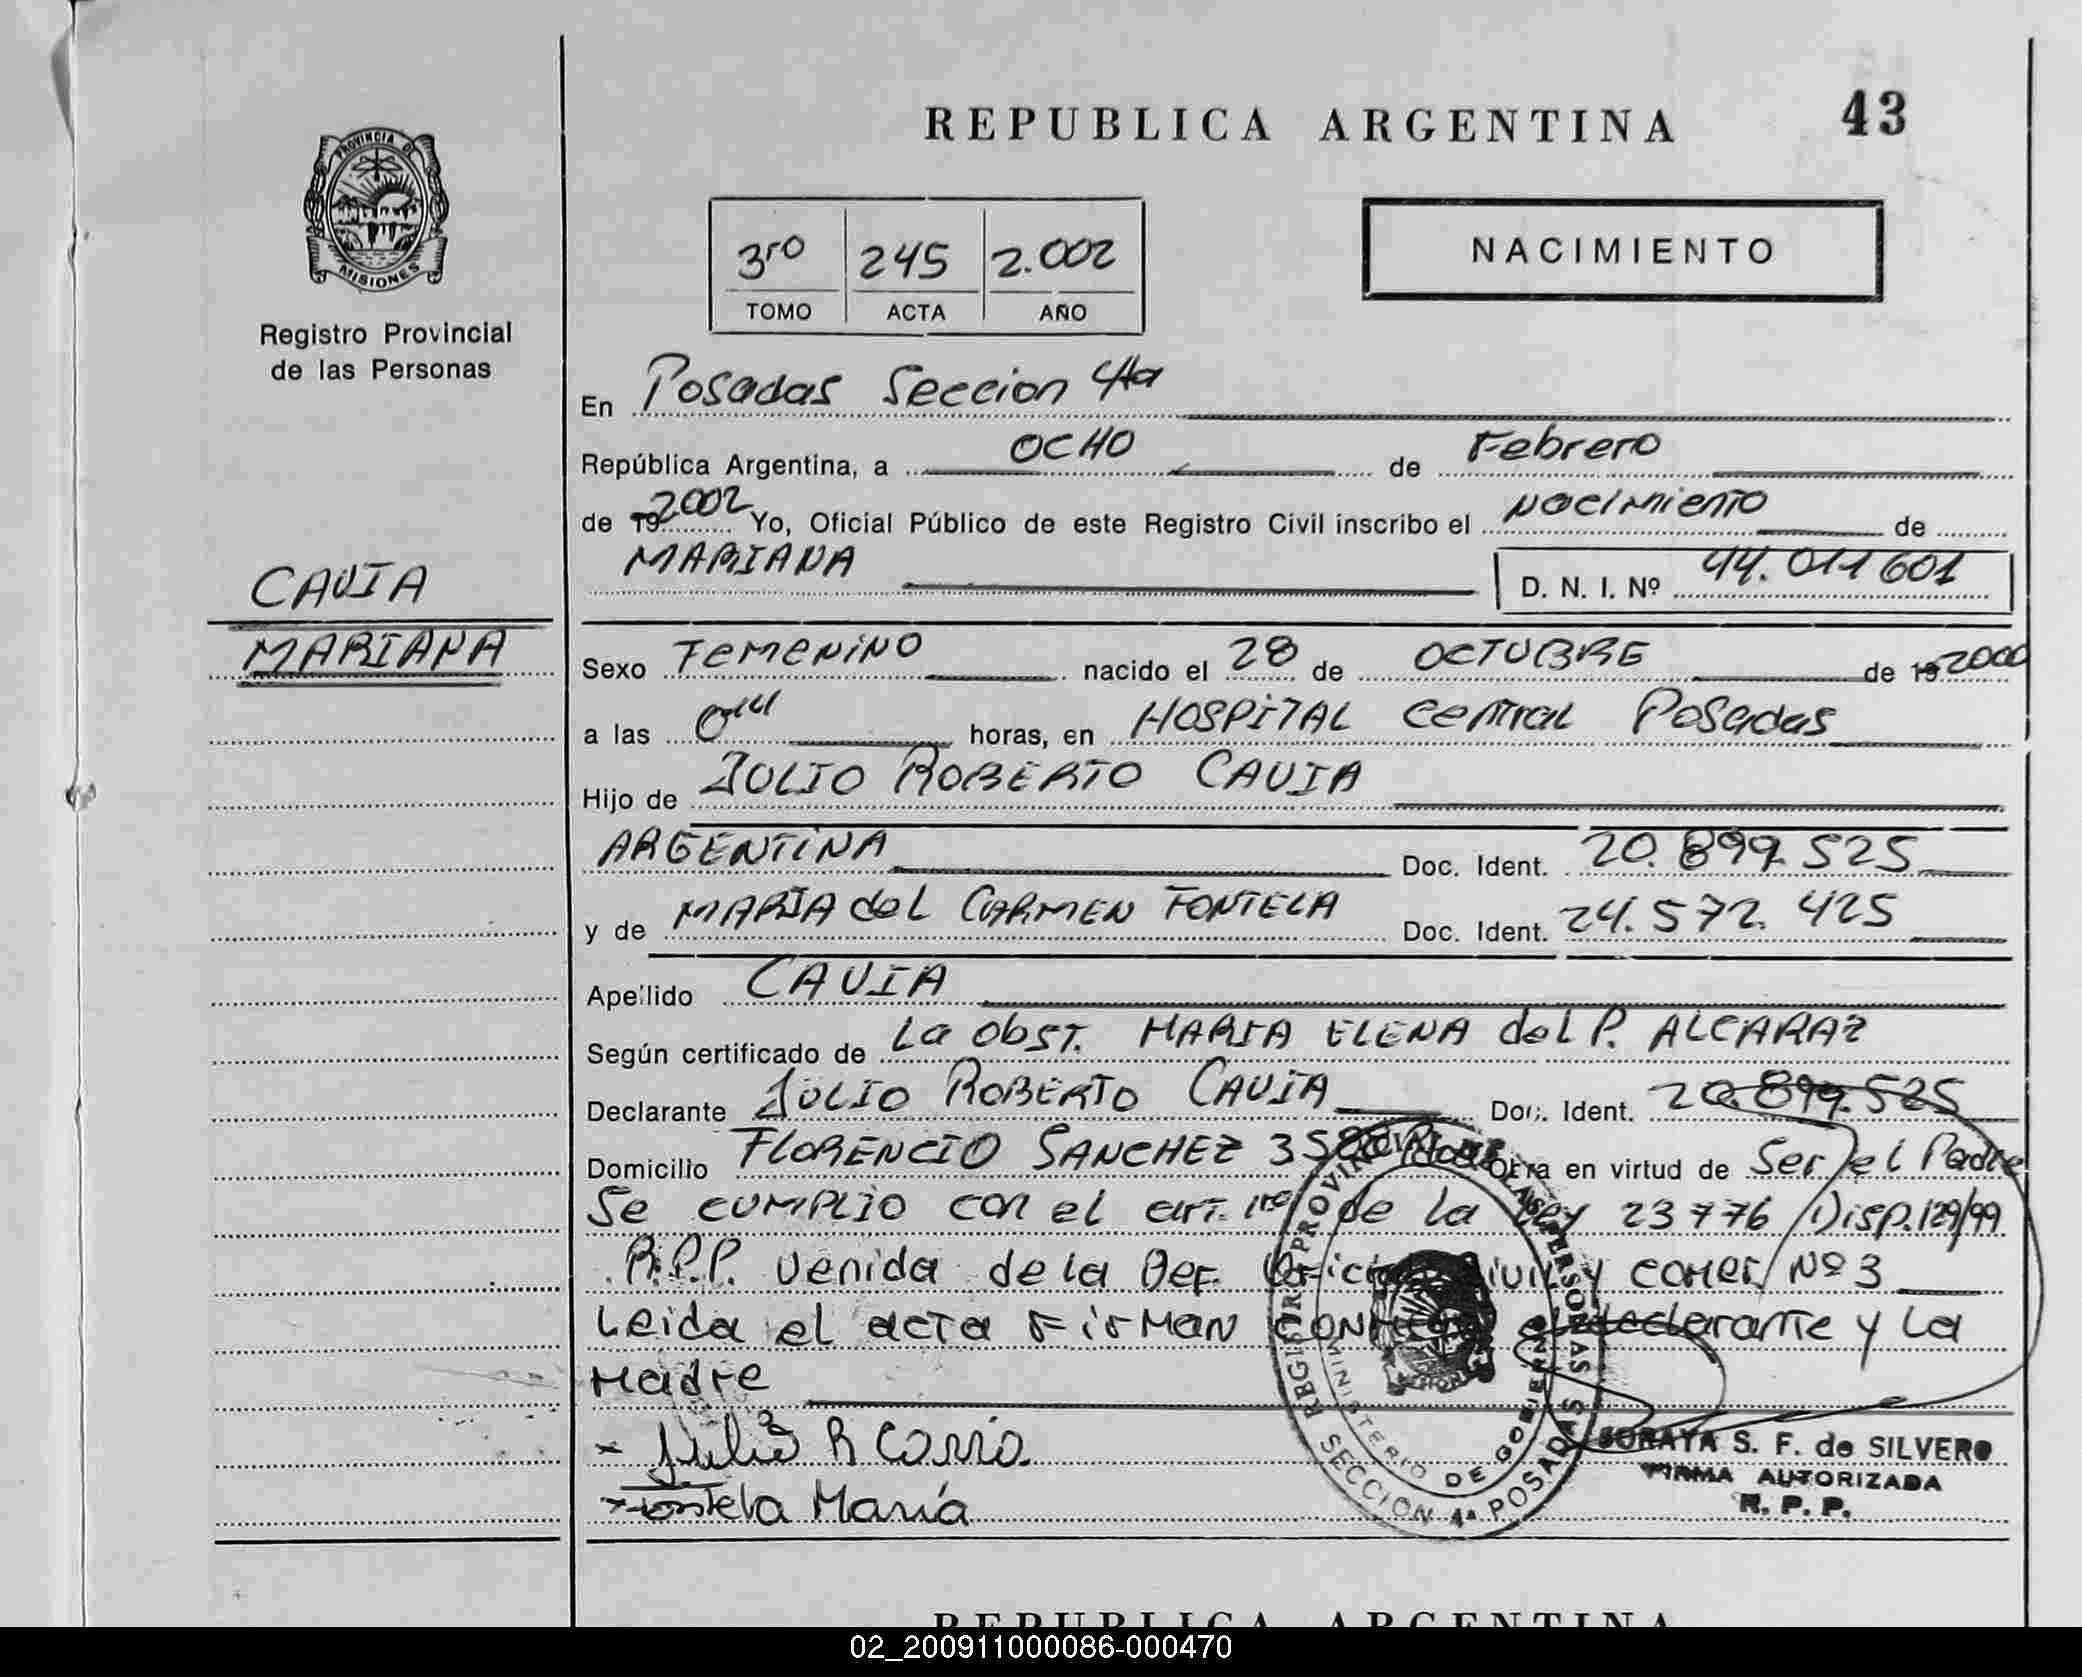 REPUBLICA ARGENTINA 43
PROVINCIA DE
MISIONES
Registro Provincial
de las Personas
3ro 245 2.002
TOMO ACTA AÑO
NACIMIENTO
En Posadas Seccion 4ta
República Argentina, a OCHO de Febrero
de 19 2002 Yo, Oficial Público de este Registro Civil inscribo el nacimiento de
MARIANA D. N. I. Nº 44.011601
CAVIA
MARIANA
Sexo Femenino nacido el 28 de OCTUBRE de 19 2000
a las horas, en HOSPITAL Central Posadas
Hijo de JULIO ROBERTO CAVIA
ARGENTINA Doc. Ident. 20.899.525
y de MARIA del CARMEN FONTELA Doc. Ident. 24.572.425
Apellido CAVIA
Según certificado de La Obst. MARIA ELENA del P. ALCARAZ
Declarante JULIO ROBERTO CAVIA Doc. Ident. 20.899.525
Domicilio FLORENCIO SANCHEZ en virtud de Ser el Padre
Se cumplio con el art. 1ro de la Ley 23776 Disp.129/99
R.P.P. venida de la Def. Oficial Civil y Comer. Nº 3
Leida el acta Firman conmigo el declarante y La
Madre
Julio R Cavia
Fontela María
REGISTRO PROVINCIAL DE LAS PERSONAS
SECCION 4ª POSADAS
MINISTERIO DE GOBIERNO
SORAYA S. F. de SILVERO
FIRMA AUTORIZADA
R. P. P.
REPUBLICA ARGENTINA
02_200911000086-000470